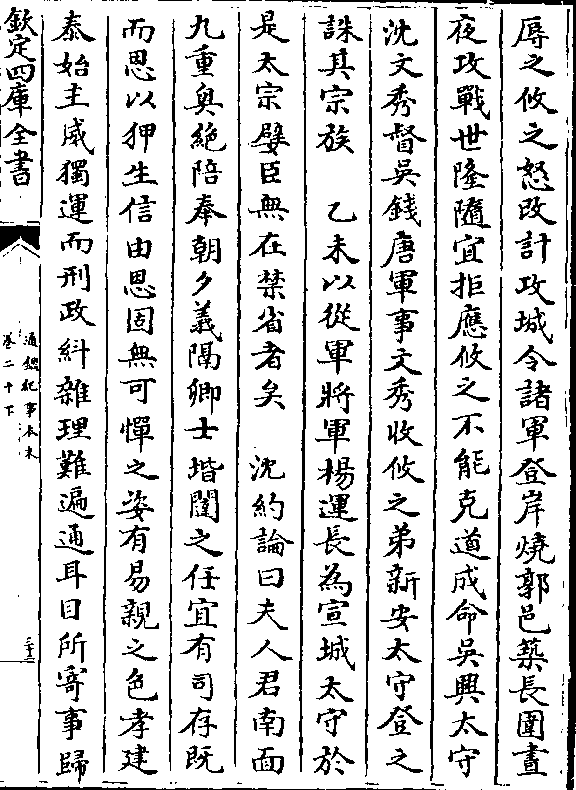 辱之攸之怒改計攻城令諸軍登岸燒郭邑築長圍晝
夜攻戰世隆隨宜拒應攸之不能克道成命吳興太守
沈文秀督吳錢唐軍事文秀收攸之弟新安太守登之
誅其宗族　乙未以從軍將軍楊運長為宣城太守於
是太宗嬖臣無在禁省者矣　沈約論曰夫人君南面
九重奥絶陪奉朝夕義隔卿士堦闥之任宜有司存既
而恩以狎生信由恩固無可憚之姿有易親之色孝建
泰始主威獨運而刑政糾雜理難遍通耳目所寄事歸
欽定四庫全書
通鑑紀事本末
卷二十下
三十二